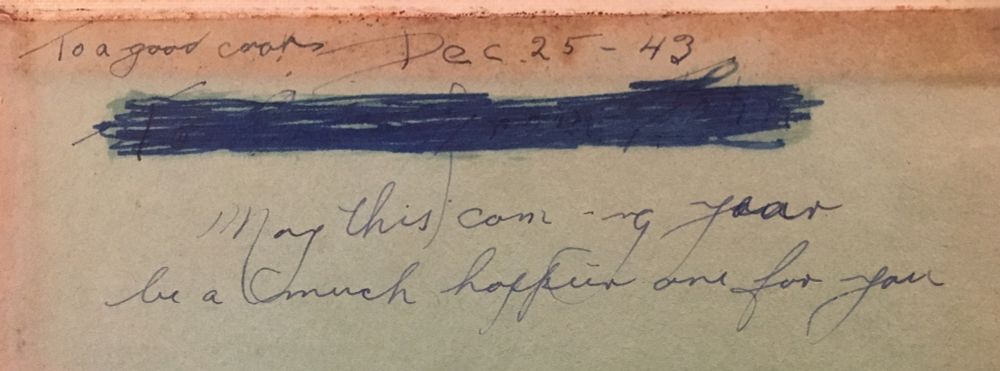 To a good cook Dec. 25 - 43
May this coming year
be a much happier one for you